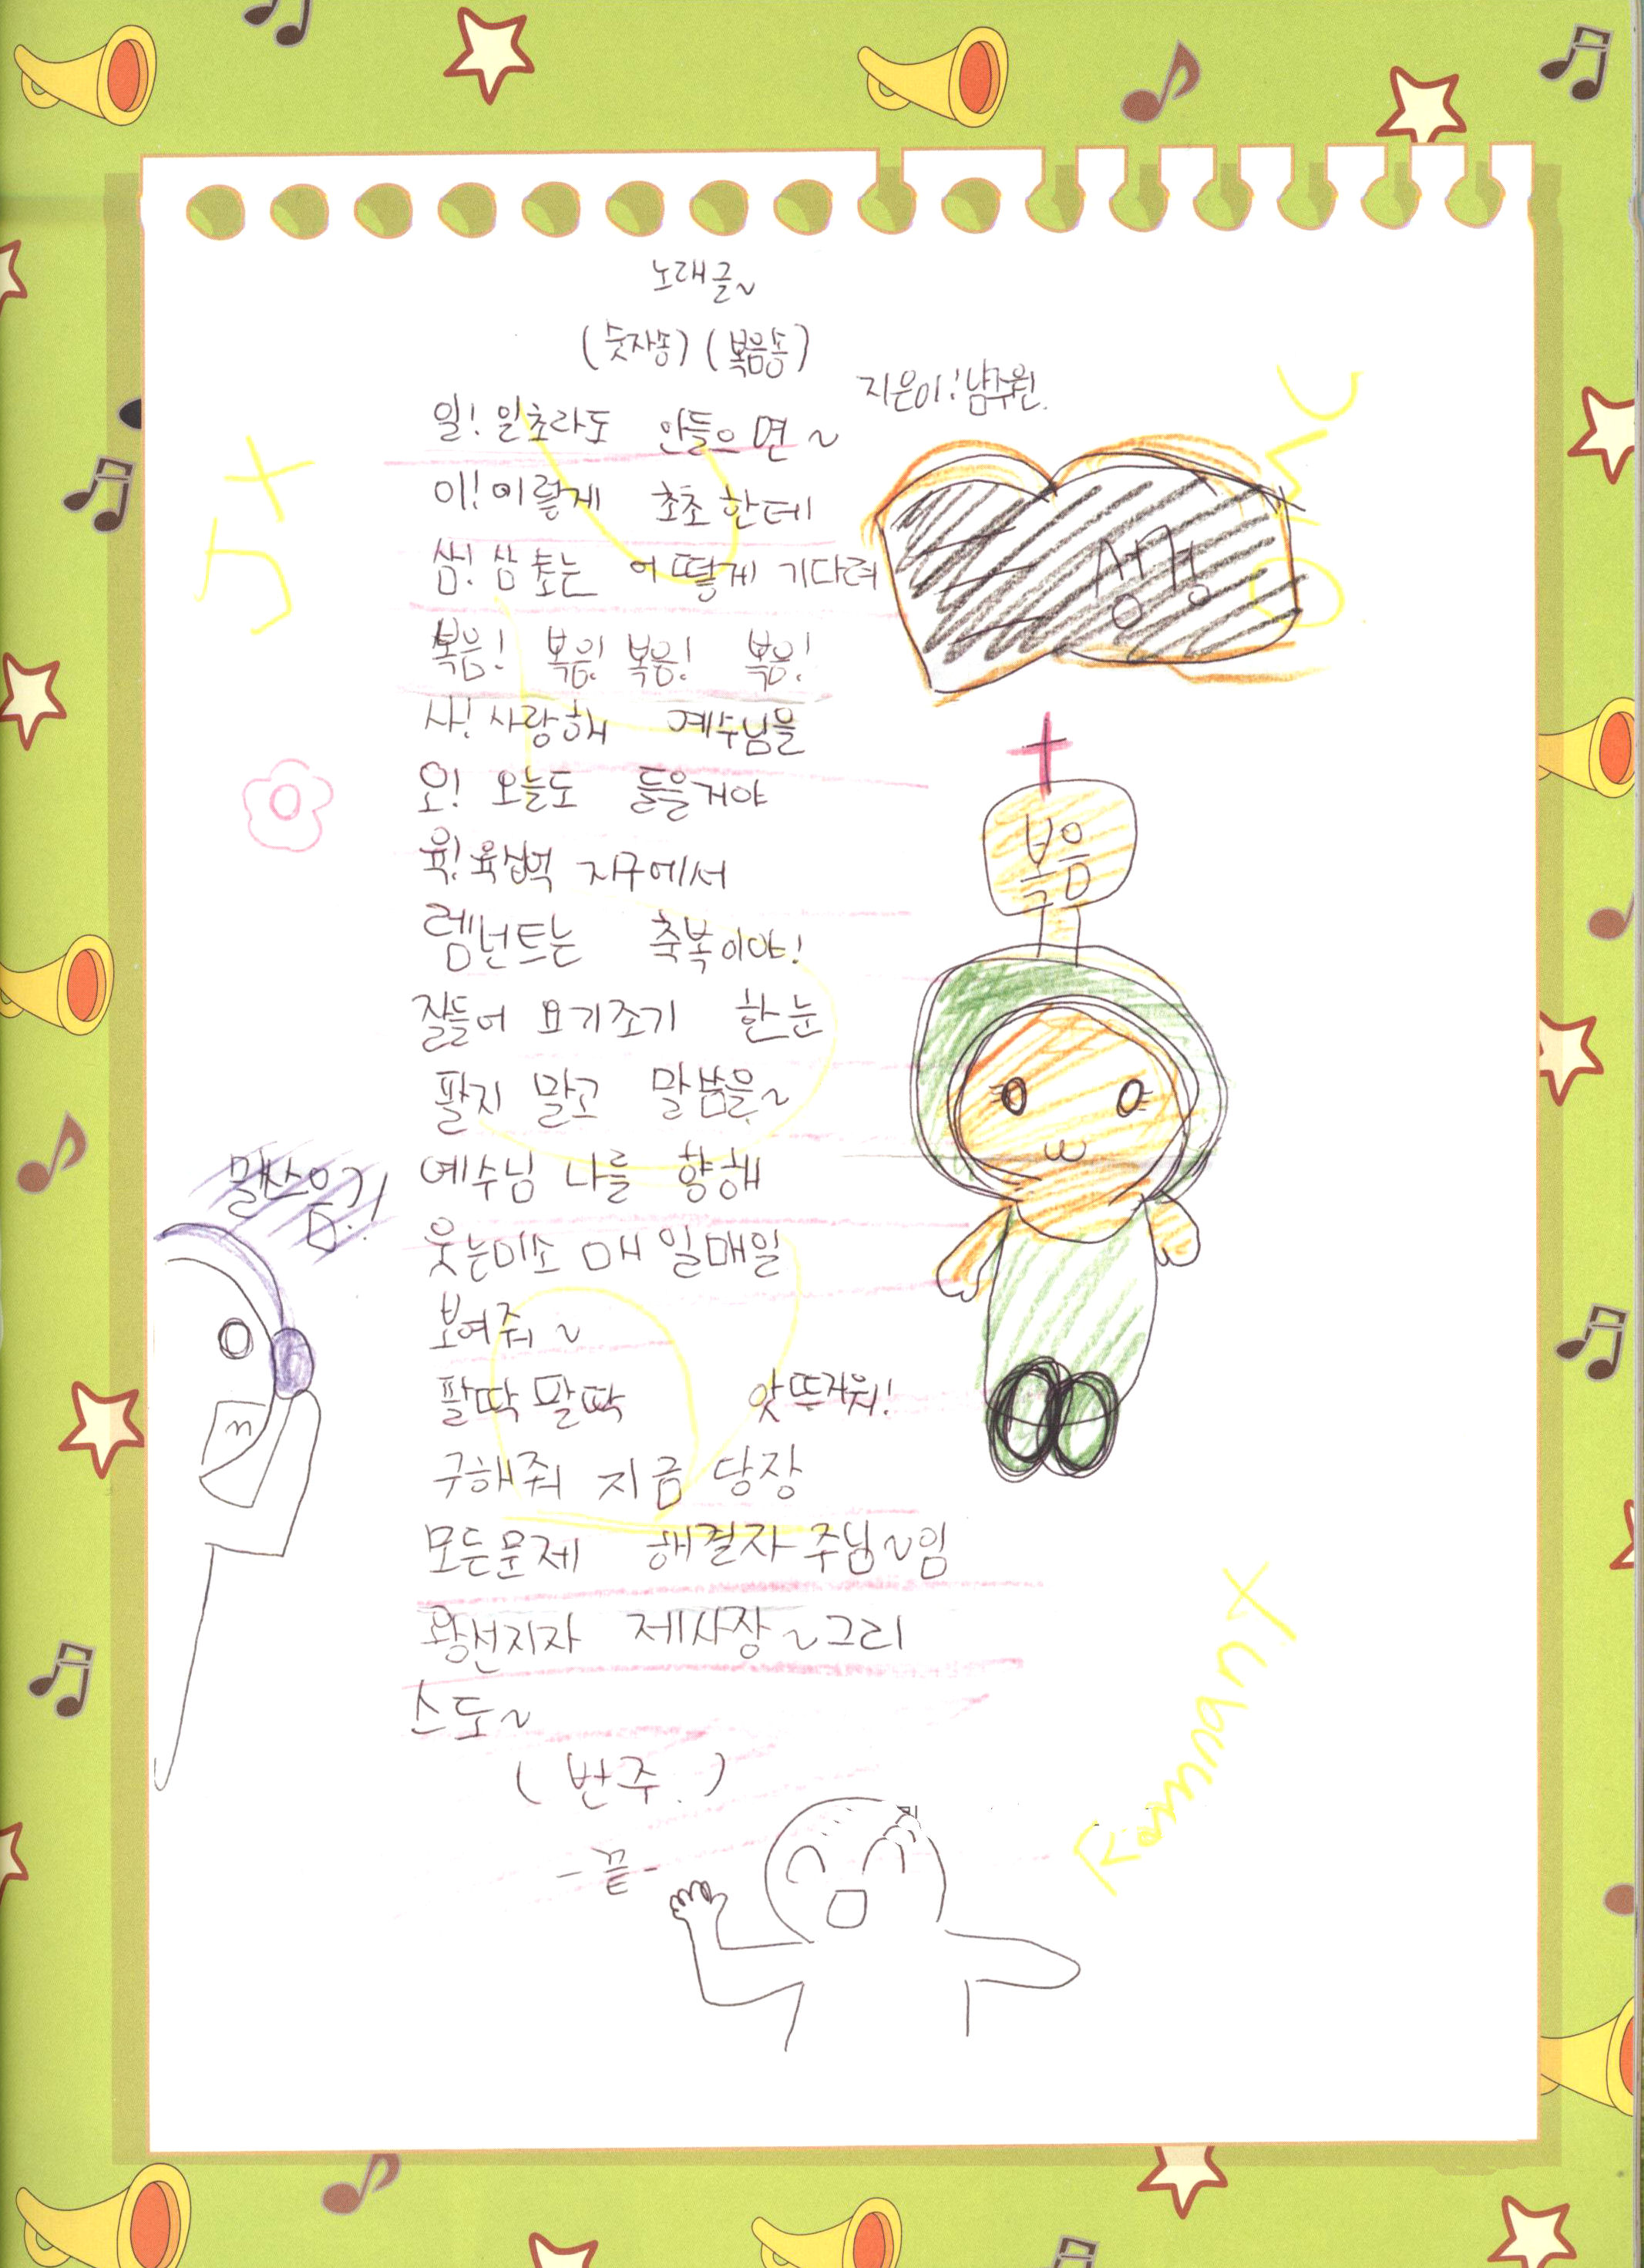 노래글~
(숫자송) (복음송)
지은이! 남주원.
일! 일초라도 안들으면~
이! 이렇게 초초한데
삼! 삼초는 어떻게 기다려
성경
복음! 복음! 복음! 복음!
사! 사랑해 예수님을
오! 오늘도 들을거야
육! 육십억 지구에서
복음
렘넌트는 축복이야!
잘들어 요기조기 한눈
팔지 말고 말씀을~
말씀?!
예수님 나를 향해
웃는미소 매일매일
보여줘~
팔딱팔딱 앗뜨거워!
구해줘 지금 당장
모든문제 해결자 주님~임
왕선지자 제사장~그리
스도~
(반주.)
-끝-
Remnant